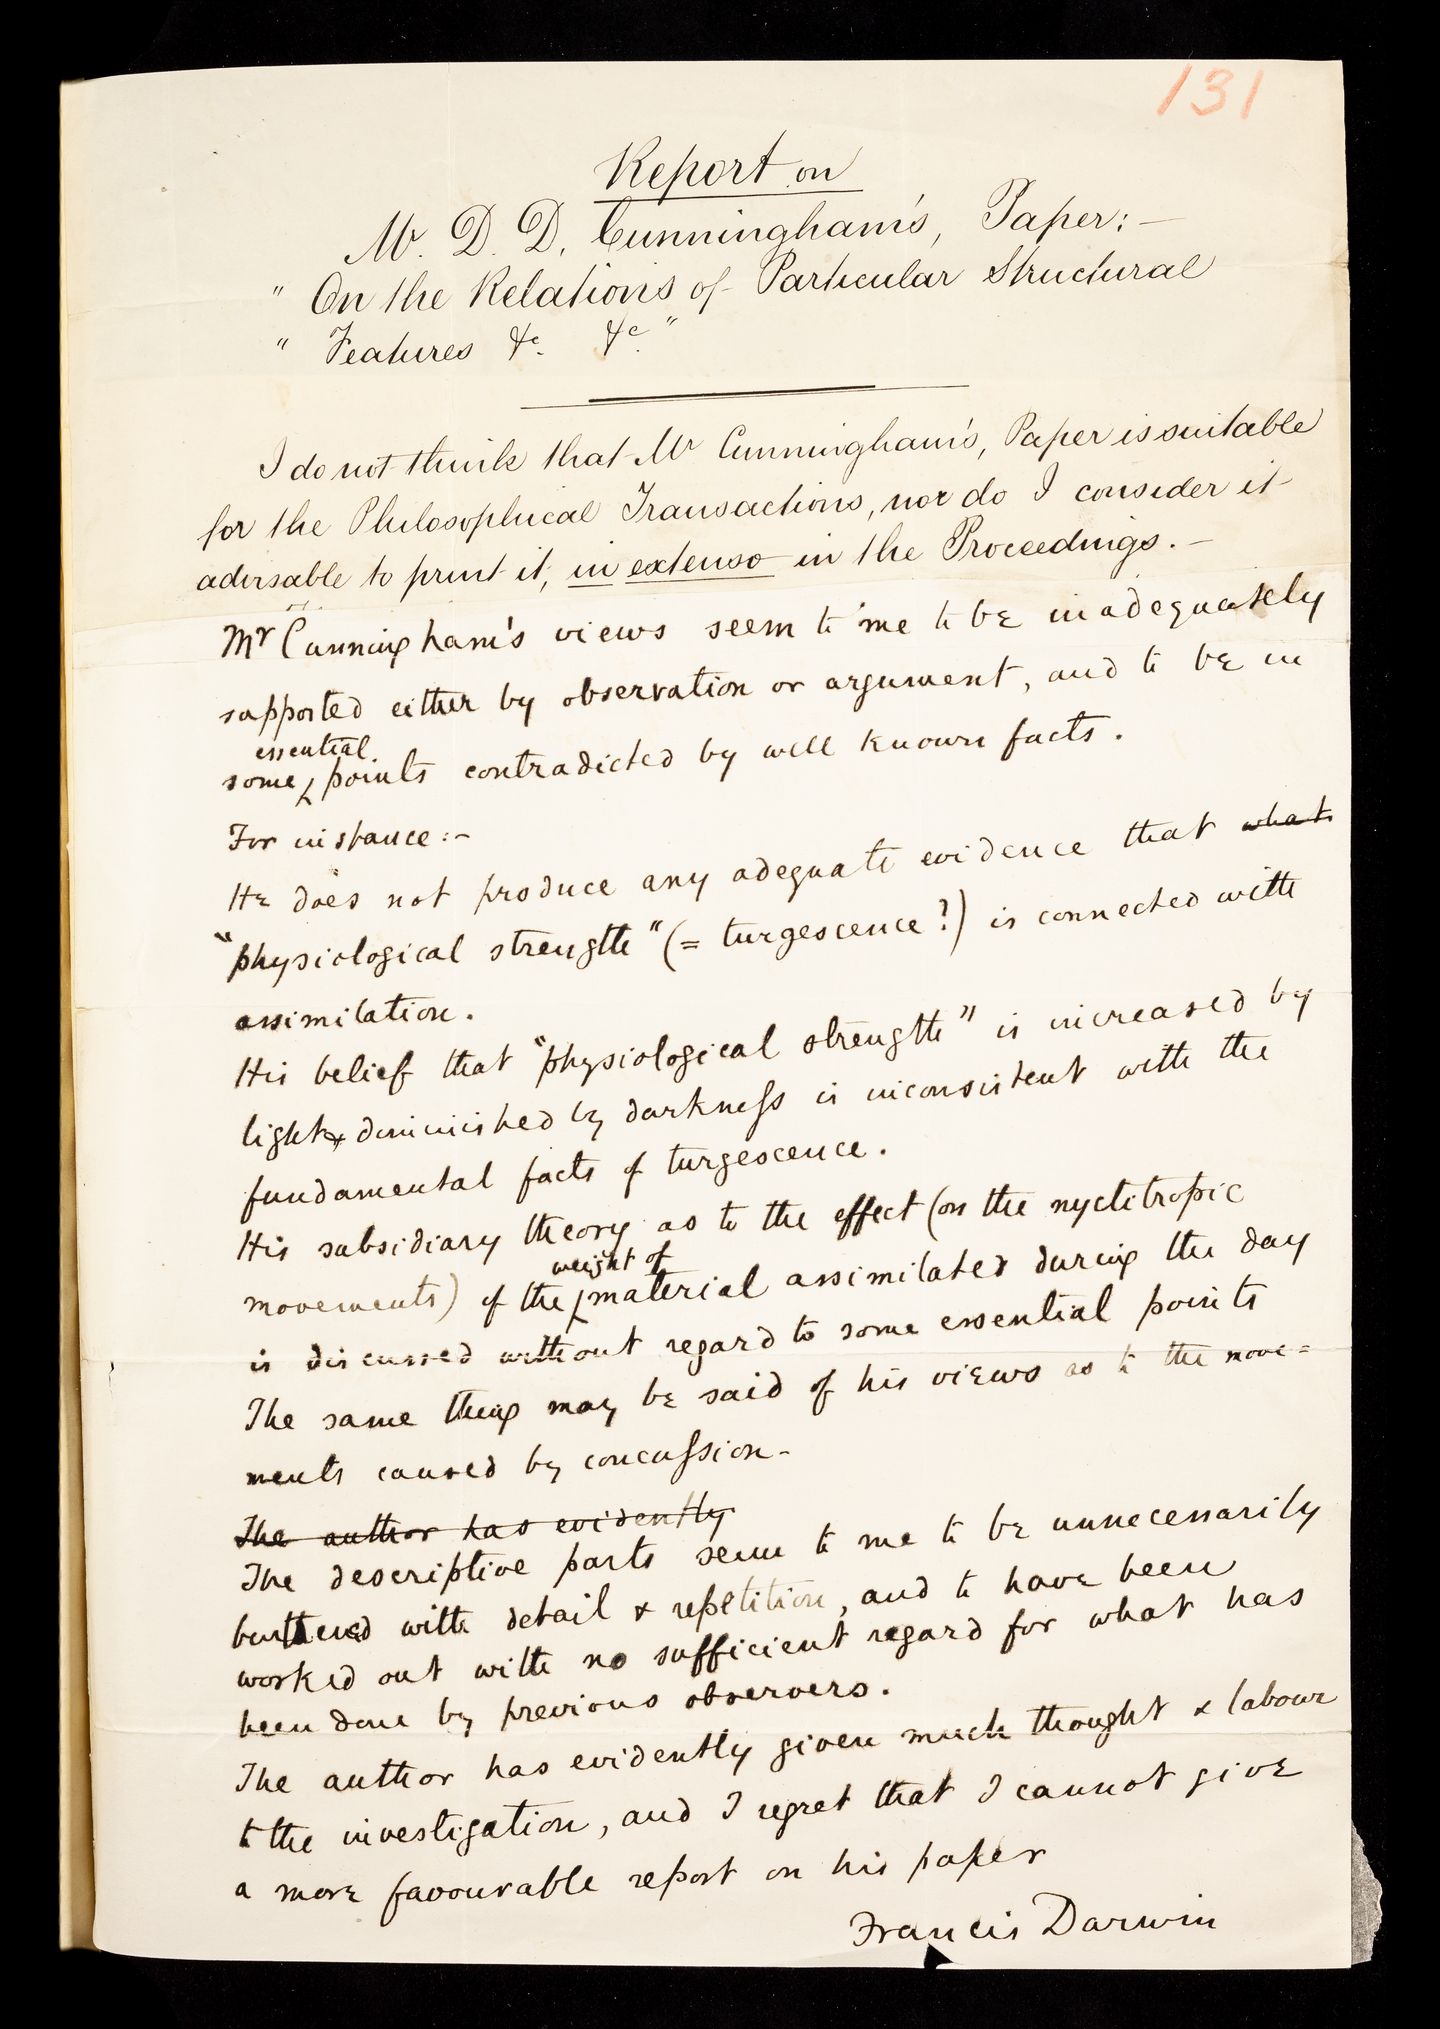 131
Report on
Mr. D. D. Cunningham's, Paper:—
" On the Relations of Particular Structural
" Features &c. &c."
I do not think that Mr Cunningham's, Paper is suitable
for the Philosophical Transactions, nor do I consider it
advisable to print it, in extenso in the Proceedings.—
Mr Cunningham's views seem to me to be inadequately
supported either by observation or argument, and to be in
essential
some points contradicted by well known facts.
For instance:—
He does not produce any adequate evidence that what
"physiological strength" (= turgescence?) is connected with
assimilation.
His belief that "physiological strength" is increased by
light & diminished by darkness is inconsistent with the
fundamental facts of turgescence.
His subsidiary theory as to the effect (on the nyctitropic
weight of
movements) of the material assimilated during the day
is discussed without regard to some essential points
The same thing may be said of his views as to the move=
ments caused by concussion-
The author has evidently
The descriptive parts seem to me to be unnecessarily
burdened with detail & repetition, and to have been
worked out with no sufficient regard for what has
been done by previous observers.
The author has evidently given much thought & labour
to the investigation, and I regret that I cannot give
a more favourable report on his paper
Francis Darwin